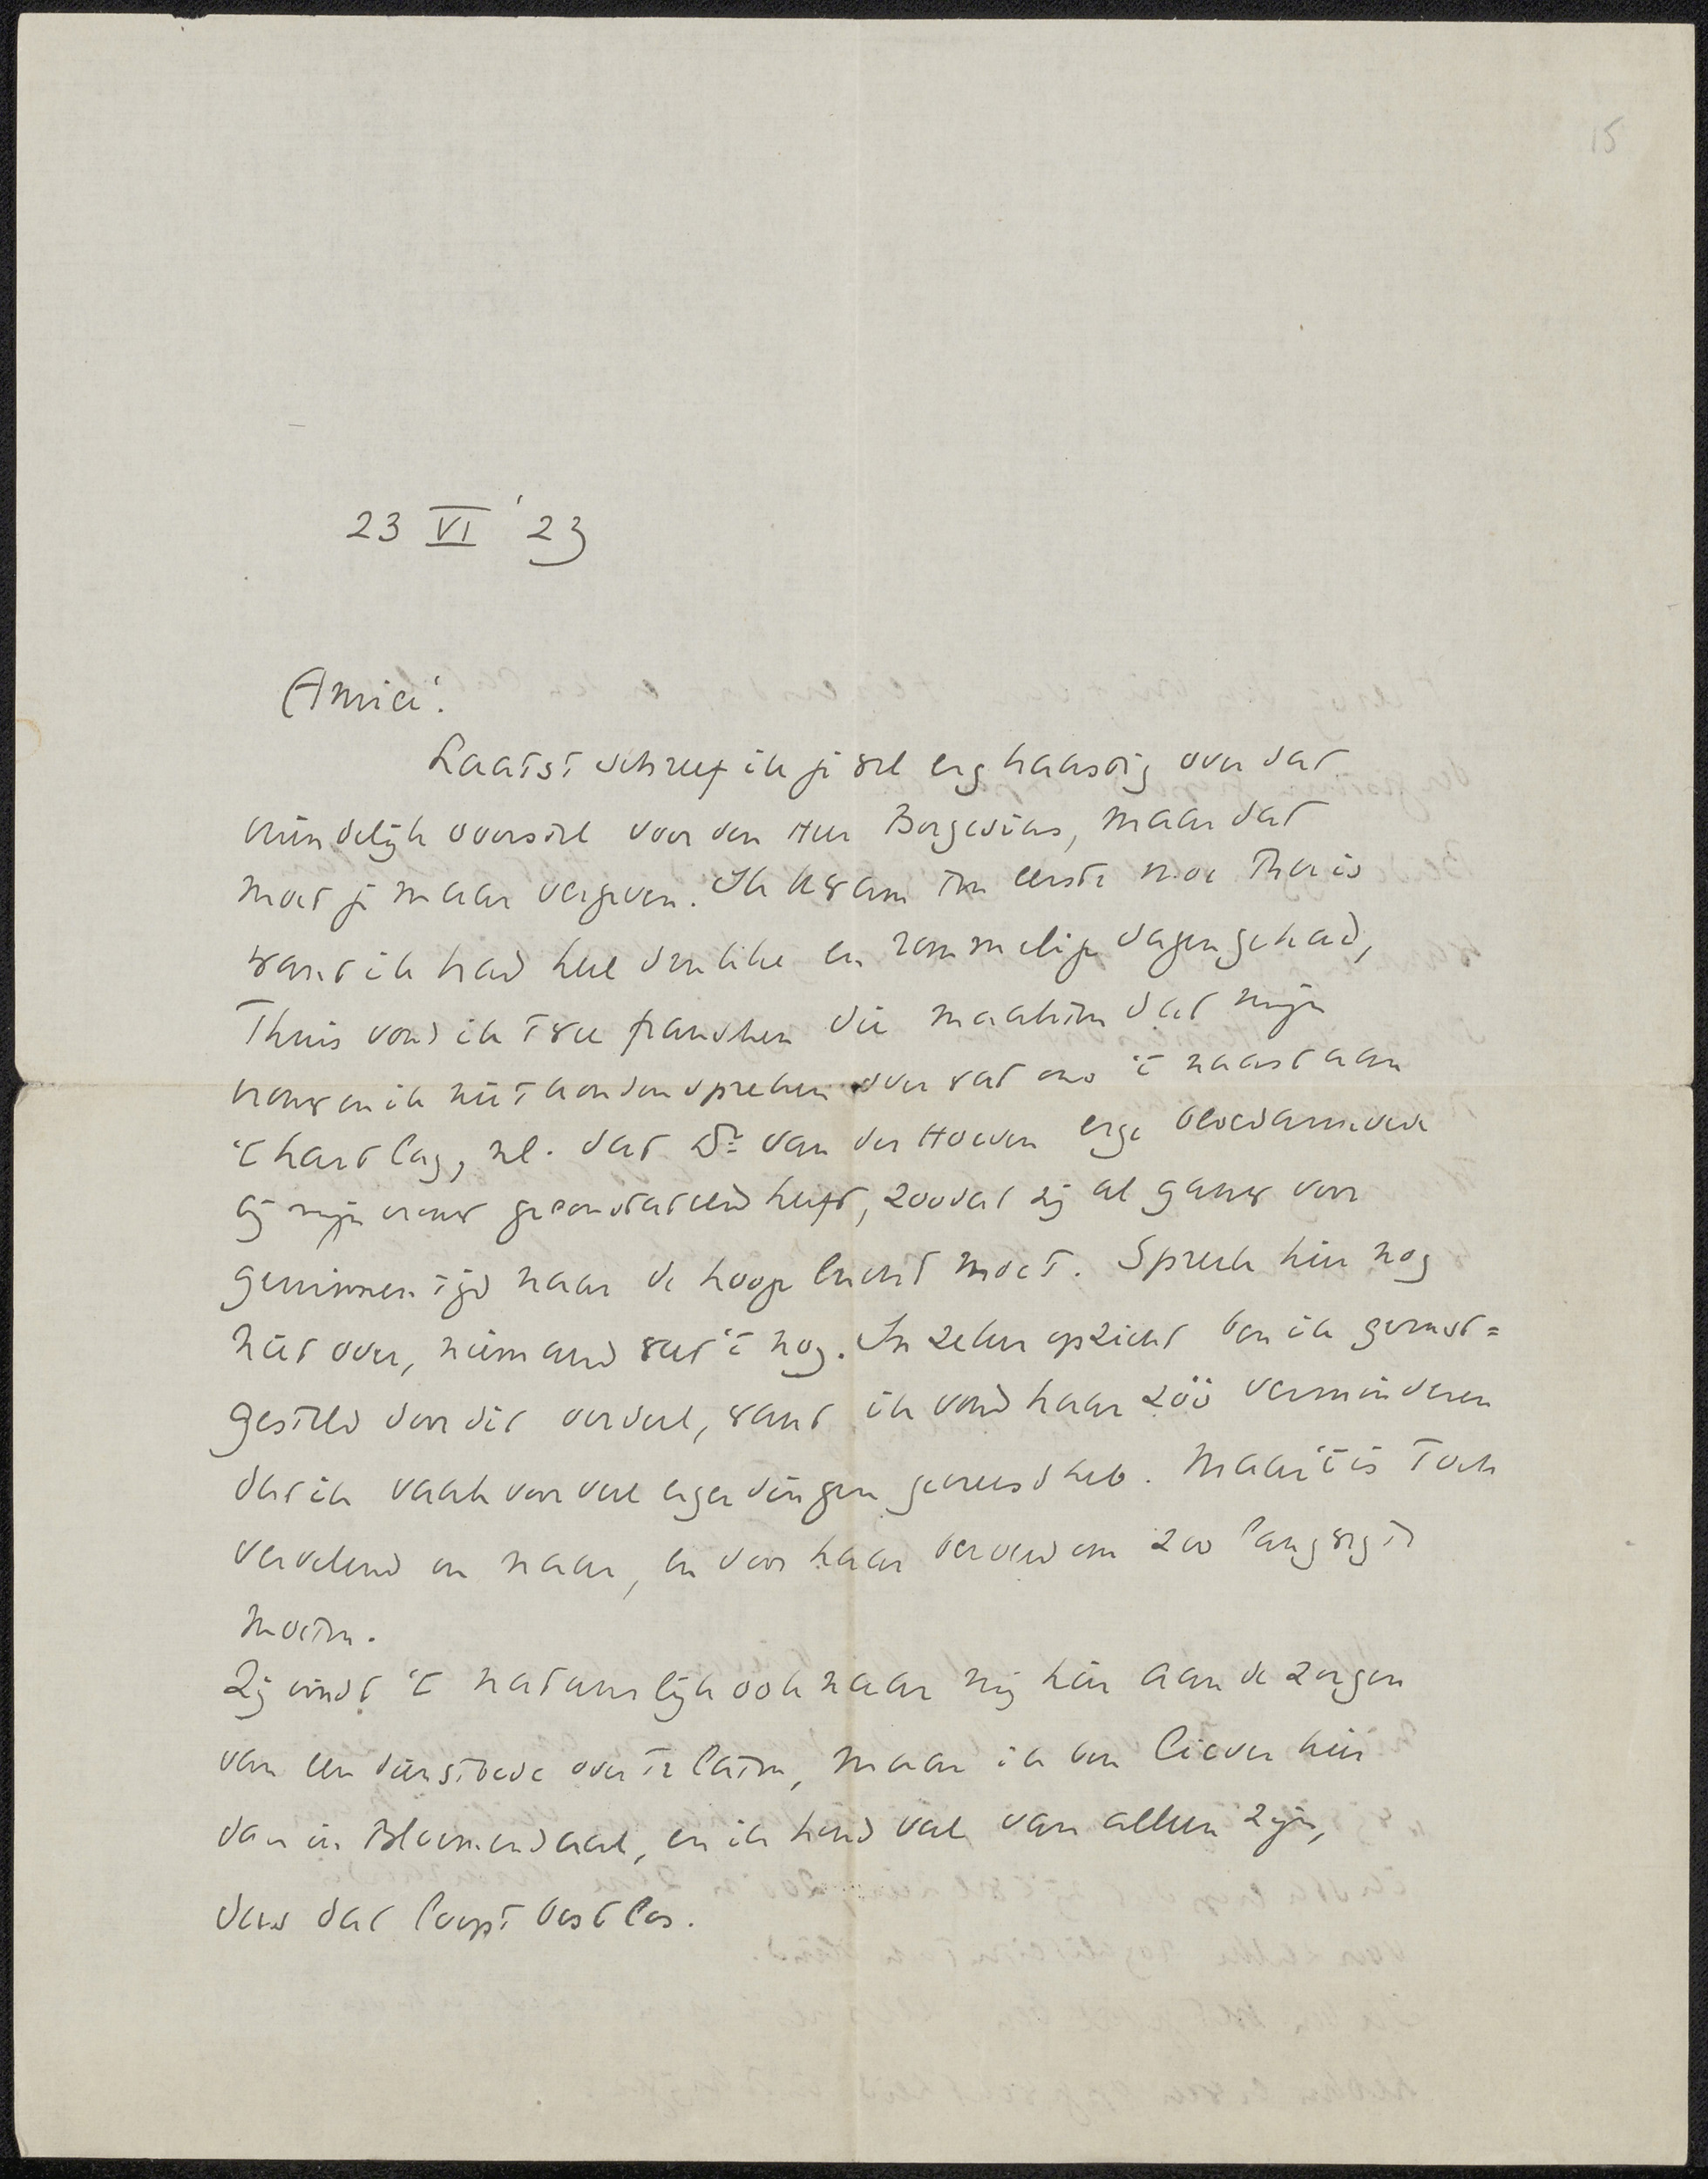 15
23 VI '23
Amice!
Laatst schreef ik je wel erg haastig over dat
vriendelijk voorstel voor den Heer Borgesius, maar dat
moet je maar vergeven. Ik kwam ten eerste moe thuis
want ik had heel drukke en rommelige dagen gehad,
Thuis vond ik twee franschen die maakten dat mijn
vrouw en ik niet konden spreken over wat ons 't naast aan
't hart lag, nl. dat Dr. van der Hoeven erge bloedarmoede
bij mijn vrouw geconstateerd heeft, zoodat zij al gauw voor
geruimen tijd naar de hooge lucht moet. Spreek hier nog
niet over, niemand weet 't nog. In zeker opzicht ben ik gerust=
gesteld door dit oordeel, want ik vond haar zóó verminderen
dat ik vaak voor veel erger dingen gevreesd heb. Maar 't is toch
vervelend en naar, en voor haar om zoo lang weg te
moeten.
Zij vindt 't natuurlijk ook naar mij hier aan de zorgen
van een dienstbode over te laten, maar ik ben liever hier
dan in Bloemendaal, en ik houd veel van alleen zijn,
dus dat loopt best los.